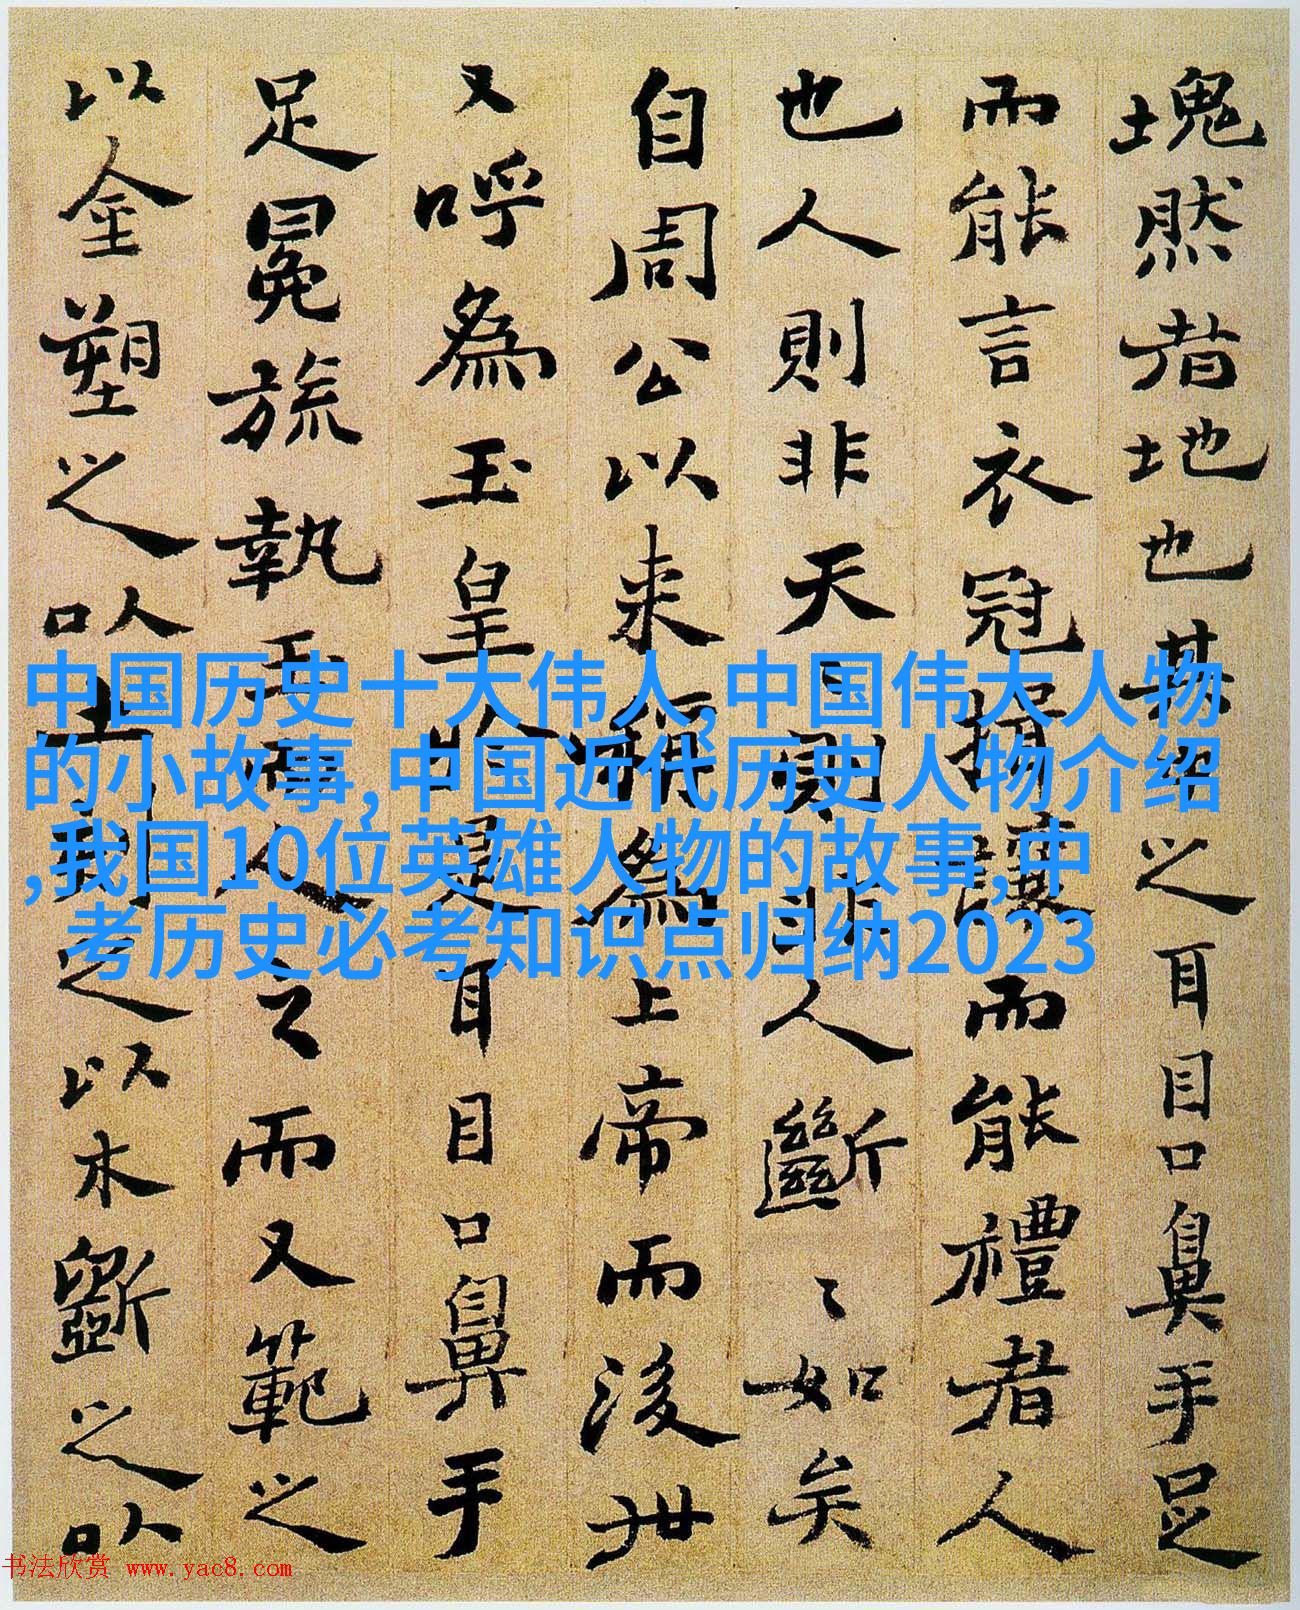 塊然者地也其之耳目口鼻手足
而能言衣冠揖讓而能禮者人
也人則非天〻則非人斷〻如矣
自周公以来稱為上帝而後世
又呼為玉皇是耳目口鼻手
足冕旒執玉而人之而又範之
以金塑之㕥土刻之以木斲之㕥
中国历史十大伟人,中国伟大人物
的小故事,中国近代历史人物介绍
,我国10位英雄人物的故事,中
考历史必考知识点归纳2023
书法欣赏 www.yac8.com